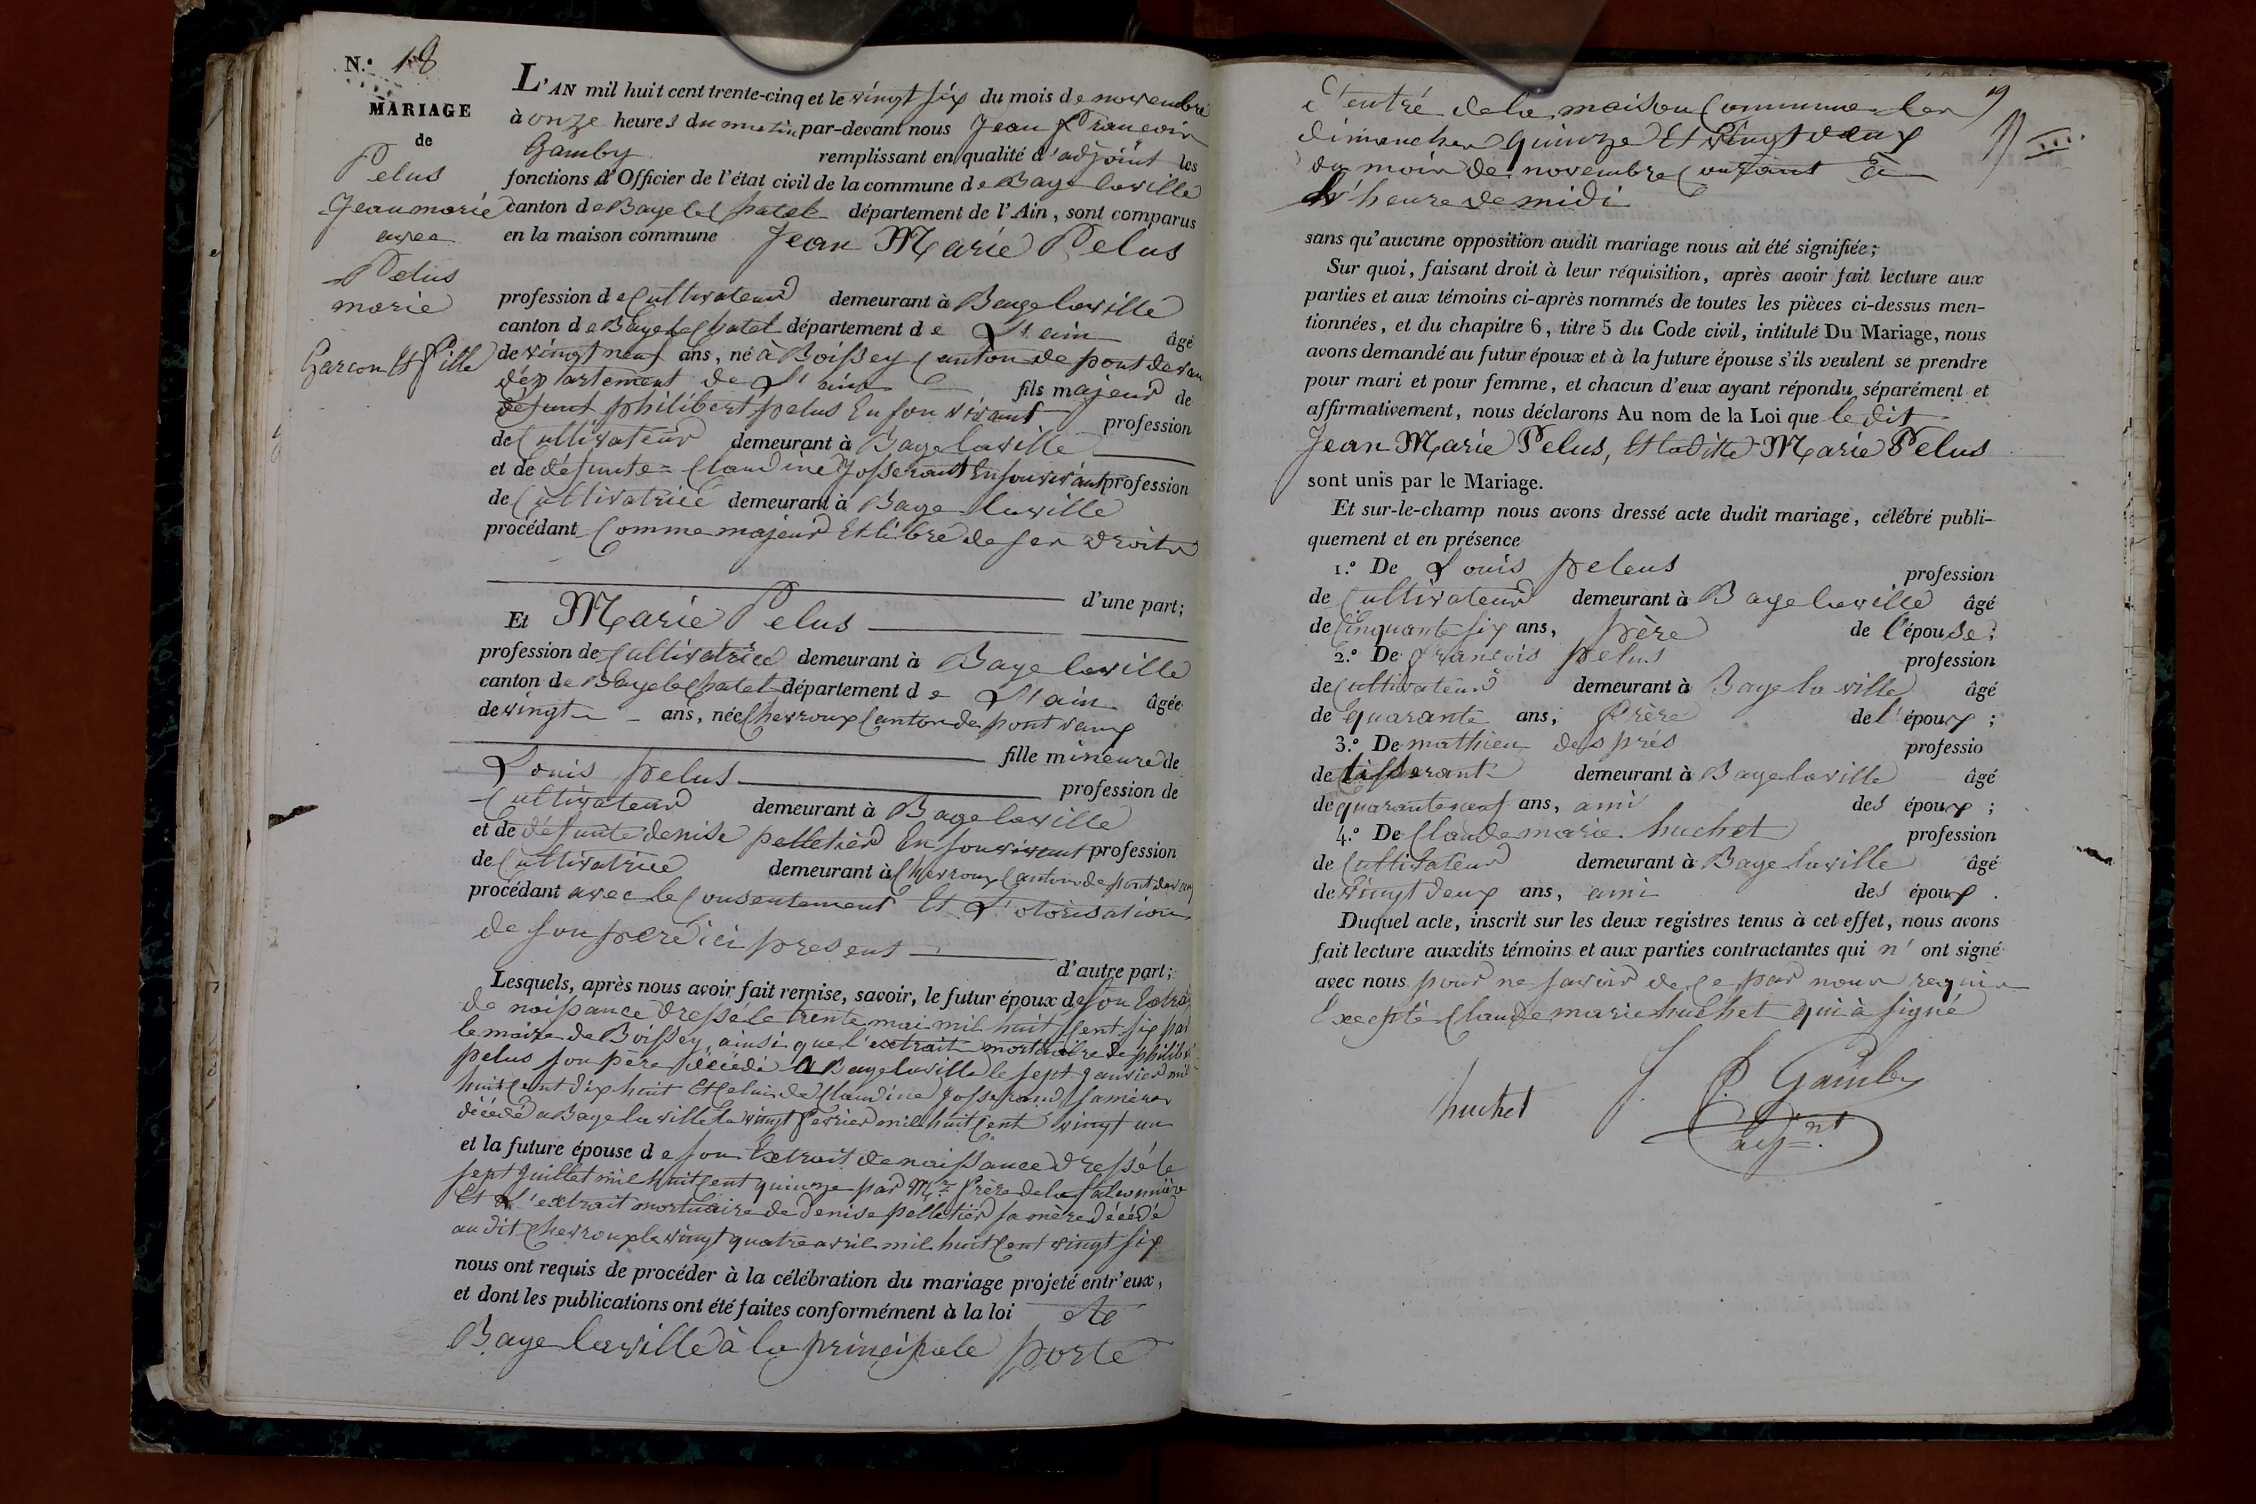 N.º 18
MARIAGE
de
Pelus
Jean marie
avec
Pelus
marie
Garcon Et fille
L'AN mil huit cent trente-cinq et le vingt six du mois de novembre
à onze heures du matin par-devant nous Jean Francois
Gamby remplissant en qualité d'adjoint les
fonctions d'Officier de l'état civil de la commune de Bage la ville
canton de Bage le Chatel département de l'Ain, sont comparus
en la maison commune Jean Marie Pelus
profession de Cultivateur demeurant à Bage la ville
canton de Bage le Chatel département de L'ain âgé
de vingt neuf ans, né à Boissey Canton de pont de vau
département de L'ain fils majeur de
defunt philibert pelus En son vivant profession
de Cultivateur demeurant à Bage la ville
et de défunte Claudine Josserand En son vivant profession
de Cultivatrice demeurant à Bage la ville
procédant Comme majeur Et libre de ses droits
d'une part;
Et Marie Pelus
profession de Cultivatrice demeurant à Bage la ville
canton de Bage le Chatel département de L'ain âgée
de vingt ans, née Chevroux Canton de pont vaux
fille mineure de
Louis pelus profession de
Cultivateur demeurant à Bage la ville
et de défunte denise pelletier En son vivant profession
de Cultivatrice demeurant à Chevroux Canton de pont de vaux
procédant avec le Consentement Et L'otorisation
de son pere ici present
d'autre part;
Lesquels, après nous avoir fait remise, savoir, le futur époux de son Extrait
de naissance dressé le trente mai mil huit Cent six par
le maire de Boissey, ainsi que l'extrait mortuaire de philibert
pelus son père décédé a Bage la ville le sept janvier mil
huit Cent dix huit Et Celui de Claudine Josserand sa mère
décédé a Bage la ville le vingt fevrier mil huit Cent vingt un
et la future épouse de son Extrait de naissance dressé le
sept Juillet mil huit Cent quinze par Mr frère de la falconnière
Et L'extrait mortuaire de denise pelletier sa mère décédé
au dit Chevroux le vingt quatre avril mil huit Cent vingt six
nous ont requis de procéder à la célébration du mariage projeté entr'eux,
et dont les publications ont été faites conformément à la loi
Bage la ville à la principale porte
d'entré de la maison Commune les
dimanches quinze Et vingt deux
du mois de novembre Courant à
L'heure de midi
sans qu'aucune opposition audit mariage nous ait été signifiée;
Sur quoi, faisant droit à leur réquisition, après avoir fait lecture aux
parties et aux témoins ci-après nommés de toutes les pièces ci-dessus men-
tionnées, et du chapitre 6, titre 5 du Code civil, intitulé Du Mariage, nous
avons demandé au futur époux et à la future épouse s'ils veulent se prendre
pour mari et pour femme, et chacun d'eux ayant répondu séparément et
affirmativement, nous déclarons Au nom de la Loi que le dit
Jean Marie Pelus, Et la ditte Marie Pelus
sont unis par le Mariage.
Et sur-le-champ nous avons dressé acte dudit mariage, célébré publi-
quement et en présence
1.º De Louis pelus profession
de Cultivateur demeurant à Bage la ville âgé
de Cinquante six ans, père de l'épouse;
2.º De francois pelus profession
de Cultivateur demeurant à Bage la ville âgé
de quarante ans, frère de l'époux;
3.º De mathieu des prés professio
de tisserant demeurant à Bage la ville âgé
de quarante neuf ans, ami des époux;
4.º De Claude marie huchet profession
de Cultivateur demeurant à Bage la ville âgé
de vingt deux ans, ami des époux.
Duquel acte, inscrit sur les deux registres tenus à cet effet, nous avons
fait lecture auxdits témoins et aux parties contractantes qui n'ont signé
avec nous pour ne savoir de Ce par nous requis
Excepté Claude marie huchet qui à signé
huchet J. f. Gamby
adjnt.